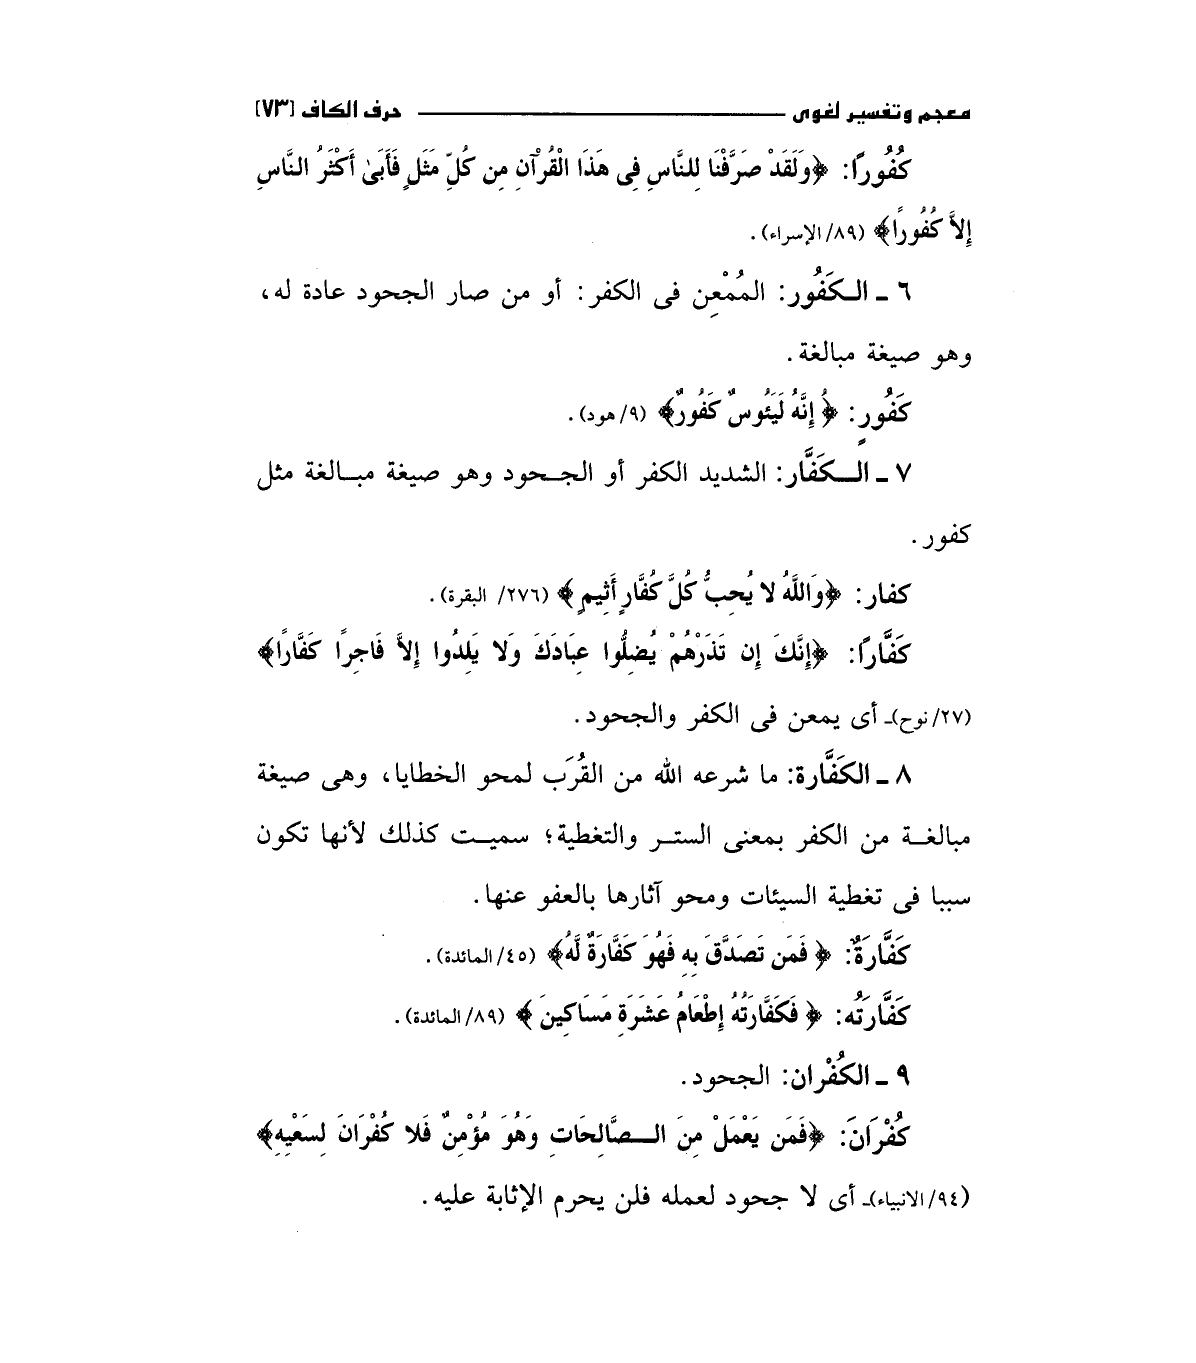 معجم وتفسير لغوى ــــــــــ حرف الكاف [٧٣]
كُفُورًا: ﴿وَلَقَدْ صَرَّفْنَا لِلنَّاسِ فِى هَذَا الْقُرْآنِ مِن كُلِّ مَثَلٍ فَأَبَىٰ أَكْثَرُ النَّاسِ
إِلاَّ كُفُورًا﴾ (٨٩/ الإسراء).
٦ ـ الـكَفُور: المُمْعِن فى الكفر: أو من صار الجحود عادة له،
وهو صيغة مبالغة.
كَفُورٍ: ﴿ إِنَّهُ لَيَئُوسٌ كَفُورٌ﴾ (٩/ هود).
٧ ـ الـكَفَّار: الشديد الكفر أو الجـحود وهو صيغة مبـالغة مثل
كفور.
كفار: ﴿وَاللَّهُ لا يُحِبُّ كُلَّ كُفَّارٍ أَثِيمٍ ﴾ (٢٧٦/ البقرة).
كَفَّارًا: ﴿إِنَّكَ إِن تَذَرْهُمْ يُضِلُّوا عِبَادَكَ وَلا يَلِدُوا إِلاَّ فَاجِرًا كَفَّارًا﴾
(٢٧/ نوح)ـ أى يمعن فى الكفر والجحود.
٨ ـ الكَفَّارة: ما شرعه الله من القُرَب لمحو الخطايا، وهى صيغة
مبالغـة من الكفر بمعنى الستـر والتغطية؛ سميـت كذلك لأنها تكون
سببا فى تغطية السيئات ومحو آثارها بالعفو عنها.
كَفَّارَةٌ: ﴿ فَمَن تَصَدَّقَ بِهِ فَهُوَ كَفَّارَةٌ لَّهُ﴾ (٤٥/ المائدة).
كَفَّارَتُه: ﴿ فَكَفَّارَتُهُ إِطْعَامُ عَشَرَةِ مَسَاكِينَ ﴾ (٨٩/ المائدة).
٩ ـ الكُفْران: الجحود.
كُفْرَانَ: ﴿فَمَن يَعْمَلْ مِنَ الـصَّالِحَاتِ وَهُوَ مُؤْمِنٌ فَلا كُفْرَانَ لِسَعْيِهِ﴾
(٩٤/ الانبياء)ـ أى لا جحود لعمله فلن يحرم الإثابة عليه.